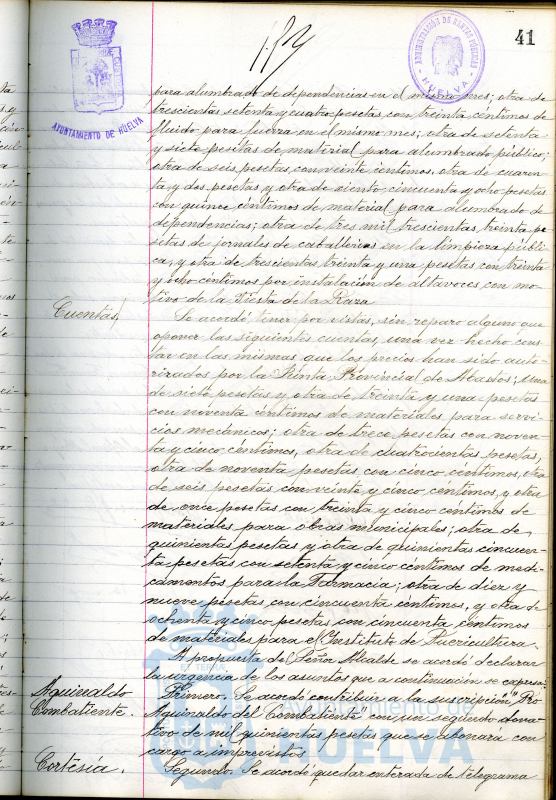 41
AYUNTAMIENTO DE HUELVA
ADMINISTRACIÓN DE RENTAS PÚBLICAS
HUELVA
para alumbrado de dependencias en el mismo mes; otra de
trescientas setenta y cuatro pesetas con treinta céntimos de
fluido para fuerza en el mismo mes; otra de setenta
y siete pesetas de material para alumbrado público;
otra de seis pesetas con veinte céntimos, otra de cuaren-
ta y dos pesetas y otra de ciento cincuenta y ocho pesetas
con quince céntimos de material para alumbrado de
dependencias; otra de tres mil trescientas treinta pe-
setas de jornales de caballerías en la limpieza públi-
ca, y otra de trescientas treinta y una pesetas con treinta
y ocho céntimos por instalación de altavoces con mo-
tivo de la Fiesta de la Raza
Cuentas
Se acordó tener por vistas, sin reparo alguno que
oponer las siguientes cuentas, una vez hecho cons-
tar en las mismas que los precios han sido auto-
rizados por la Junta Provincial de Abastos; una
de siete pesetas y otra de treinta y una pesetas
con noventa céntimos de materiales para servi-
cios mecánicos; otra de trece pesetas con noven-
ta y cinco céntimos, otra de cuatrocientas pesetas,
otra de noventa pesetas con cinco céntimos, otra
de seis pesetas con veinte y cinco céntimos, y otra
de once pesetas con treinta y cinco céntimos de
materiales para obras municipales; otra de
quinientas pesetas y otra de quinientas cincuen-
ta pesetas con setenta y cinco céntimos de medi-
camentos para la Farmacia; otra de diez y
nueve pesetas con cincuenta céntimos, y otra de
ochenta y cinco pesetas con cincuenta céntimos
de materiales para el Instituto de Puericultura.
A propuesta del Señor Alcalde se acordó declarar
la urgencia de los asuntos que a continuación se expresan
Aguinaldo
Combatiente.
Primero. Se acordó contribuir a la suscripción "Pro
Aguinaldo del Combatiente con un segundo dona-
tivo de mil quinientas pesetas que se abonará con
cargo a imprevistos
Cortesía.
Segundo. Se acordó quedar enterada de telegrama
Ayuntamiento de
HUELVA